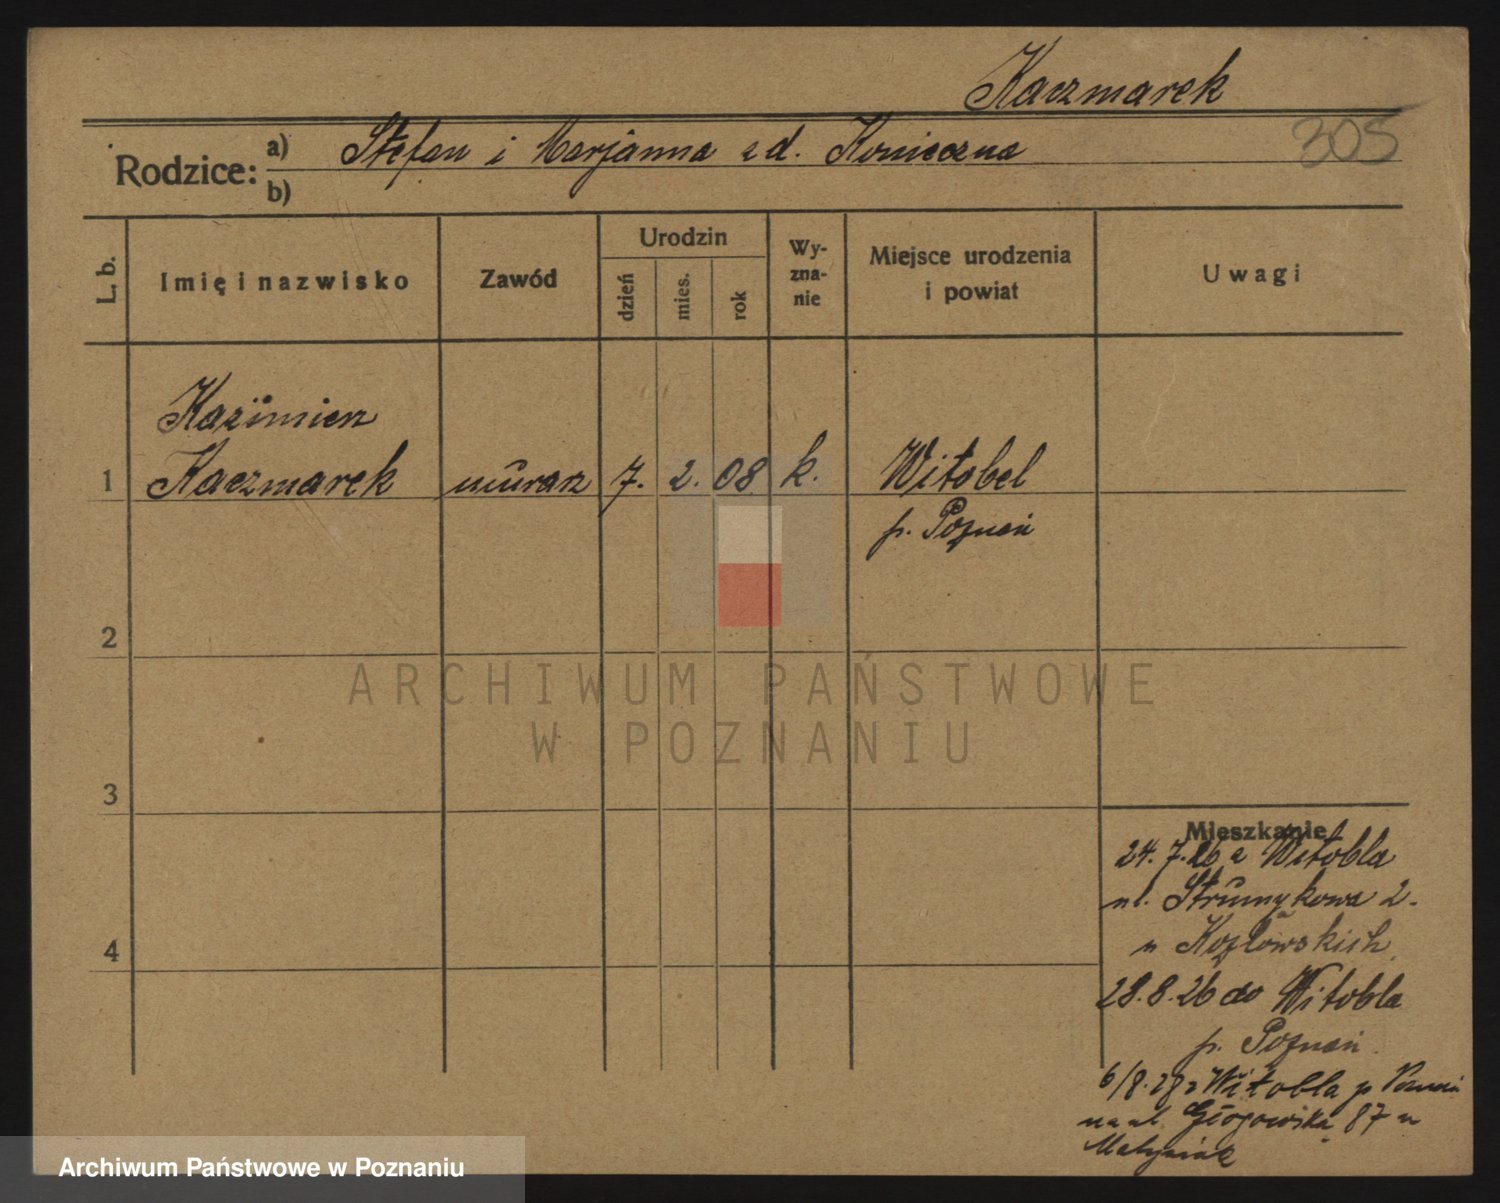 Kaczmarek
305
Rodzice: a) Stefan i Marjanna zd. Konieczna
b)
L. b.
Imię i nazwisko
Zawód
Urodzin
dzień
mies.
rok
Wy-
zna-
nie
Miejsce urodzenia
i powiat
Uwagi
Kazimierz
1 Kaczmarek murarz 7. 2. 08 k. Witobel
p. Poznań
2
ARCHIWUM PAŃSTWOWE
W POZNANIU
3
Mieszkanie
24.7.26 z Witobla
ul. Strumykowa 2.
u Kozłowskich
4
28.8.26 do Witobla
p. Poznań
6/8.28 z Witobla p Poznań
na ul. Głogowska 87 u
Matysiak
Archiwum Państwowe w Poznaniu